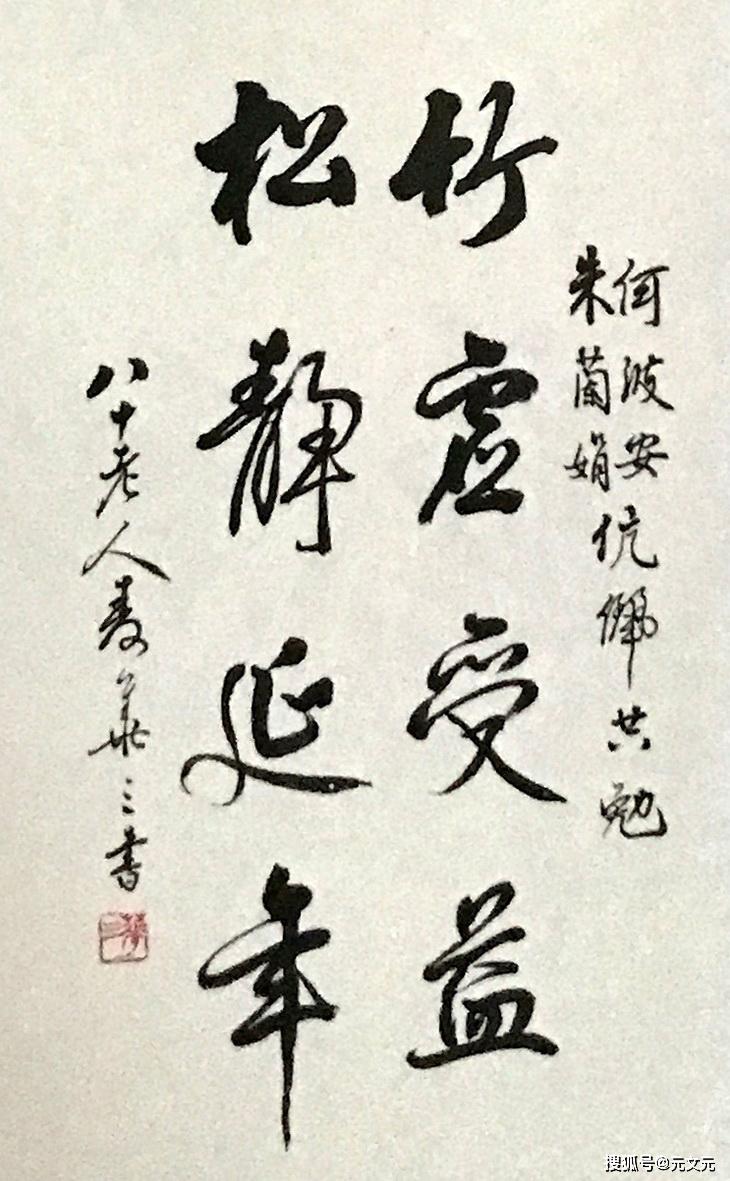 何波安
朱蘭娟
伉儷共勉
竹虛受益
松靜延年
八十老人麦華三書
搜狐号@元文元